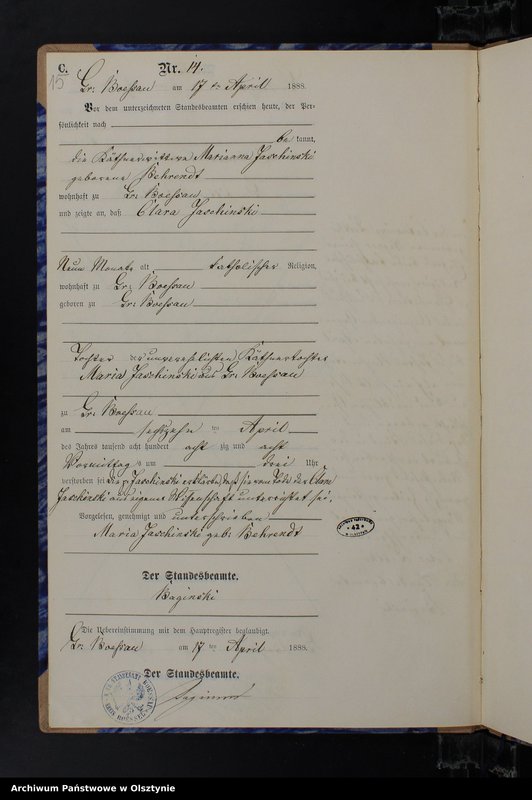 C.
15
Nr. 14.
Gr. Boessau am 17 ten April 1888.
Vor dem unterzeichneten Standesbeamten erschien heute, der Per-
sönlichkeit nach
be kannt,
die Käthnerwittwe Marianna Jaschinski
geborene Behrendt
wohnhaft zu Gr. Boessau
und zeigte an, daß Clara Jaschinski
Neun Monate alt katholischer Religion,
wohnhaft zu Gr. Boessau
geboren zu Gr. Boessau
Tochter der unverehelichten Käthnertochter
Maria Jaschinski aus Gr. Boessau
zu Gr. Boessau
am sechszehn ten April
des Jahres tausend acht hundert acht zig und acht
Vormittags um drei Uhr
verstorben sei. Die p. Jaschinski erklärte, daß sie vom Tode der Clara
Jaschinski aus eigener Wissenschaft unterrichtet sei.
Vorgelesen, genehmigt und unterschrieben
Maria Jaschinski geb. Behrendt
Der Standesbeamte.
Baginski
Die Uebereinstimmung mit dem Hauptregister beglaubigt.
Gr. Boessau am 17 ten April 1888.
Der Standesbeamte.
Baginski
42
Archiwum Państwowe w Olsztynie